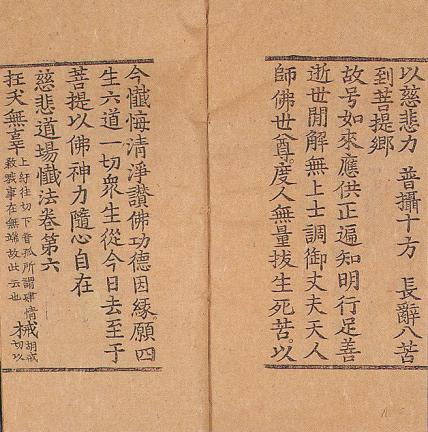 以慈悲力 普攝十方 長辭八苦
到菩提鄉
故号如來應供正遍知明行足善
逝世間解無上士調御丈夫天人
師佛世尊。度人無量拔生死苦。以
今懺悔清淨讚佛功德因緣。願四
生六道一切衆生從今日去至于
菩提以佛神力隨心自在
慈悲道場懺法卷第六
抂夭無辜上紆往切下音孤所謂肆情殺戮事在無端故此云也械胡戒切以